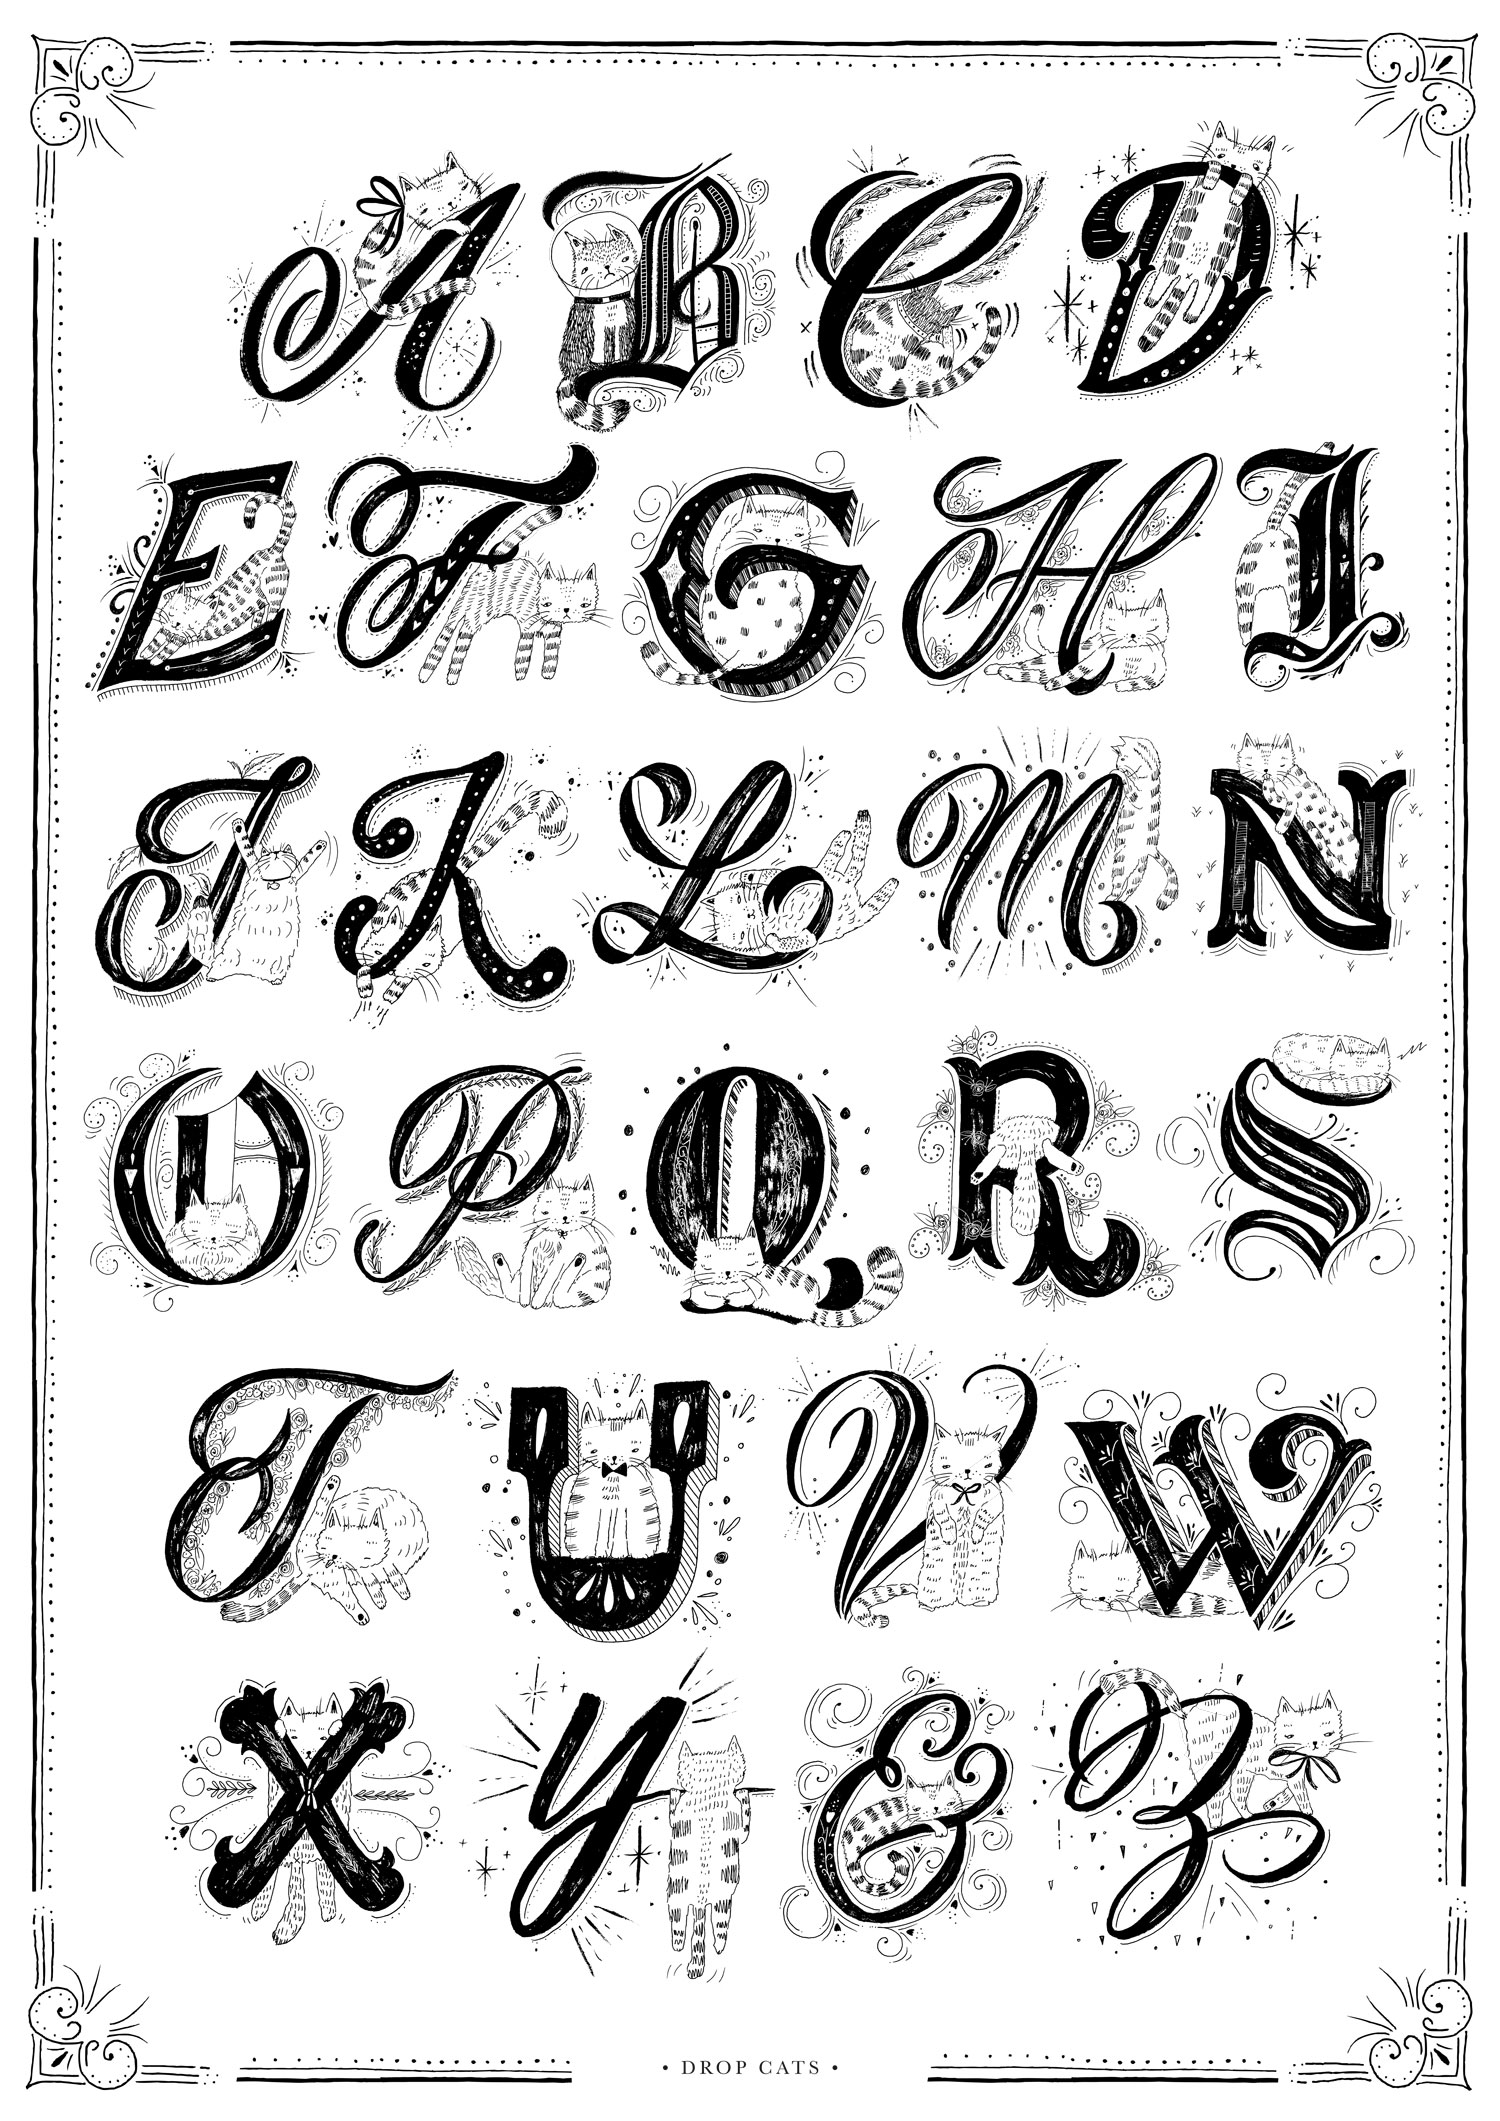 A B C D
E F G H I
J K L M N
O P Q R S
T U V W
X Y & Z
• DROP CATS •